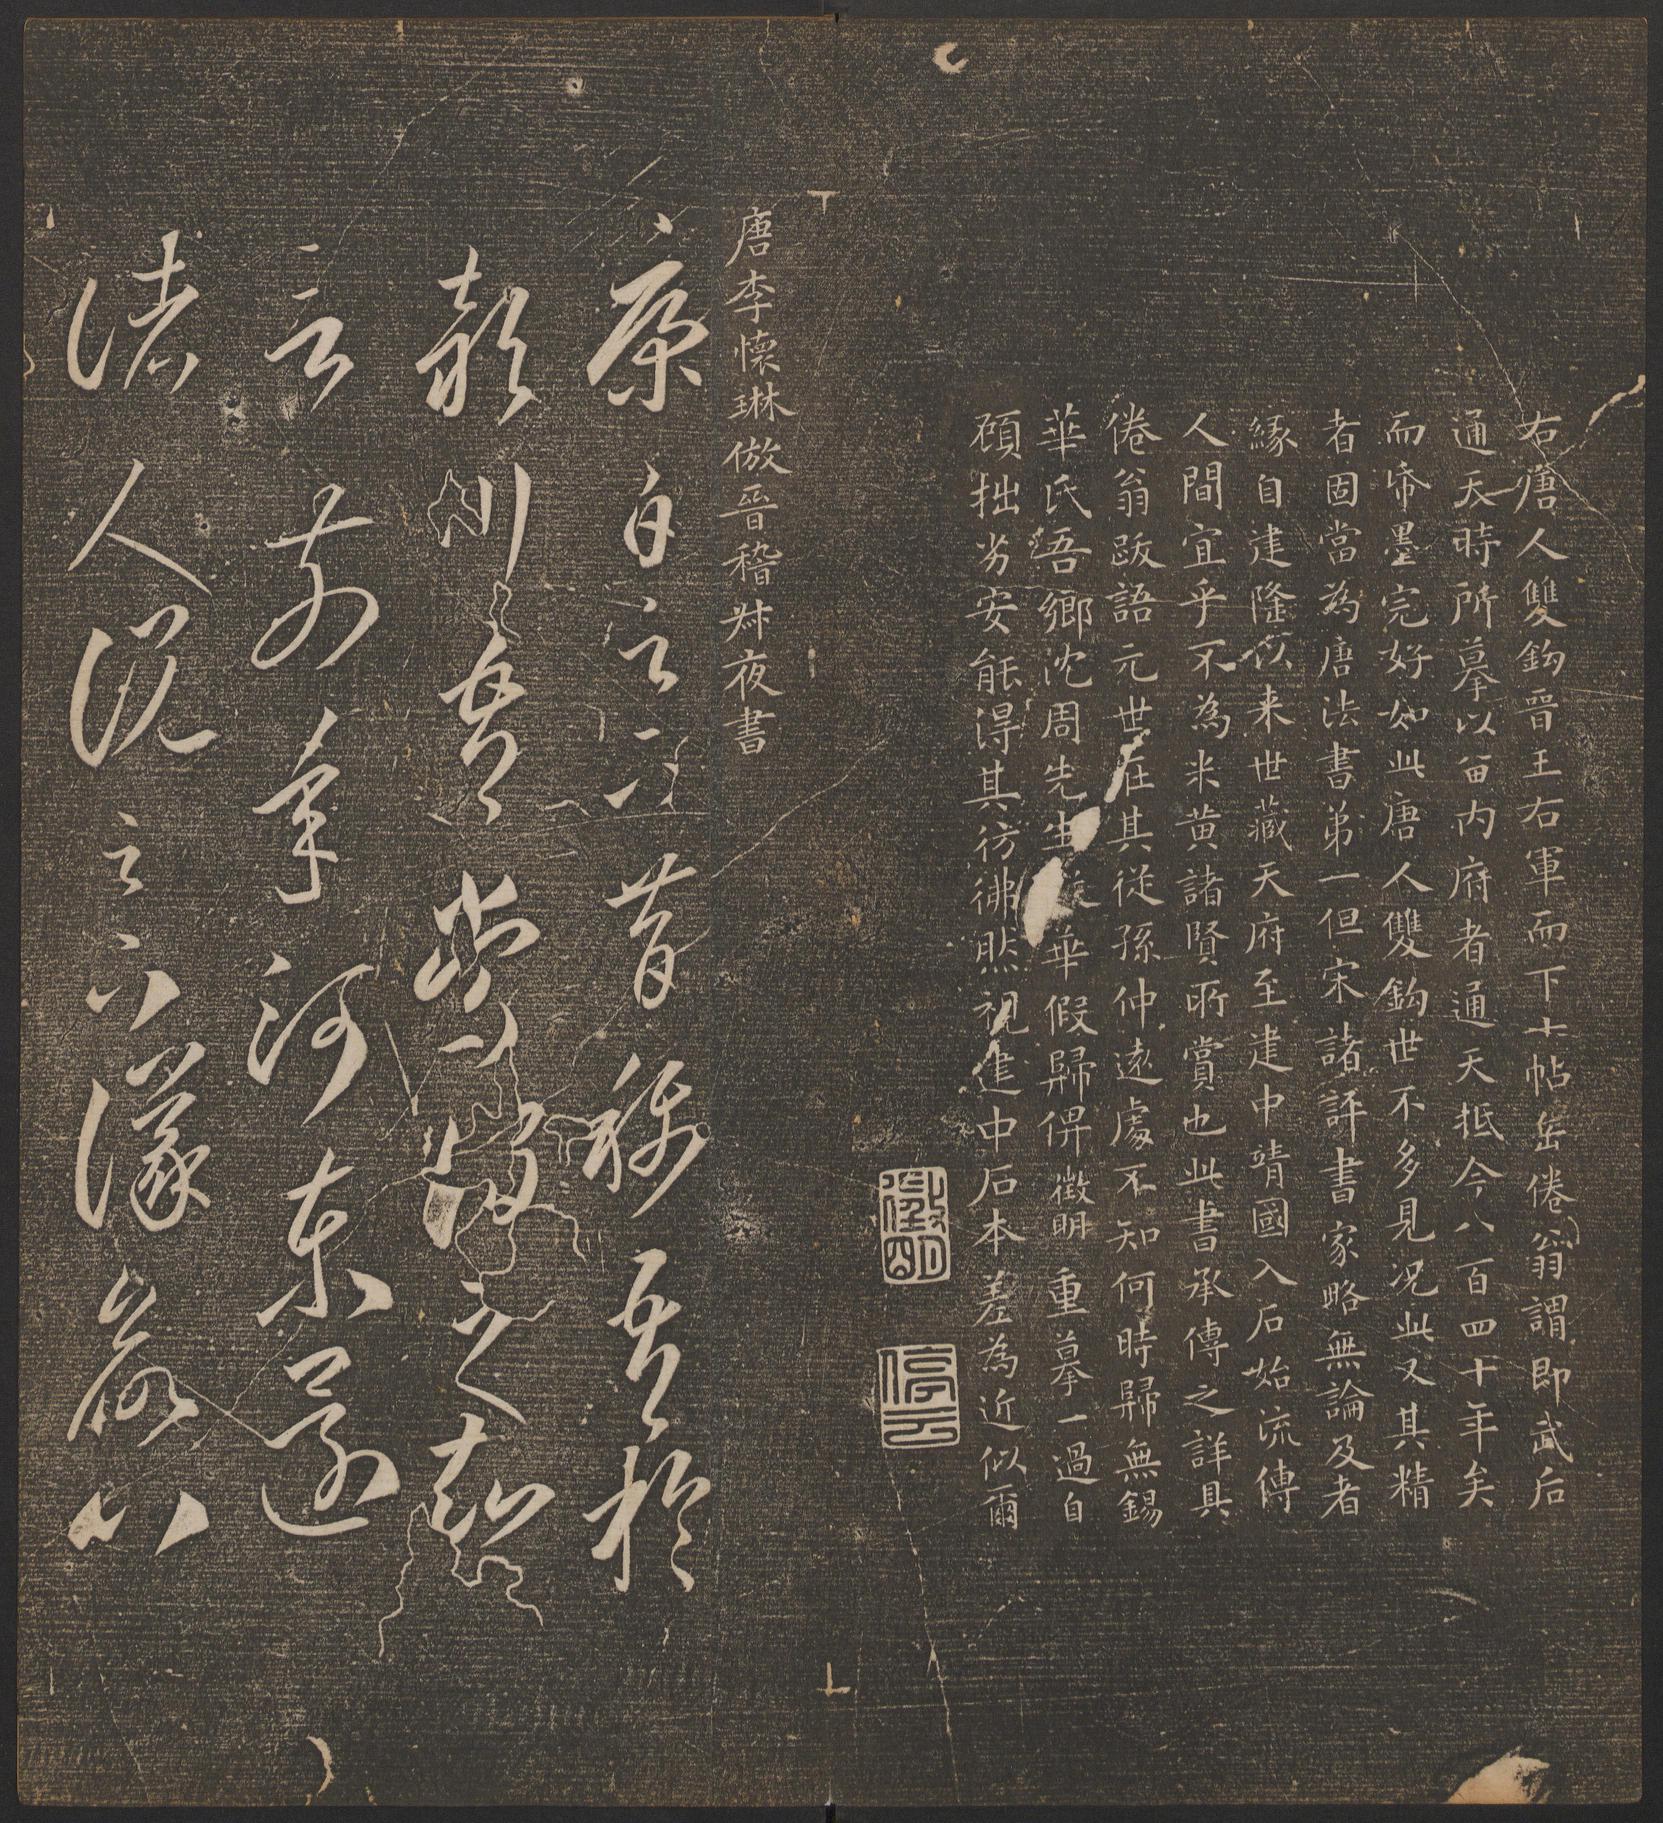 右唐人雙鈎晉王右軍而下十帖岳倦翁謂即武后
通天時所摹以畱內府者通天抵今八百四十年矣
而帋墨完好如此唐人雙鈎世不多見况此又其精
者固當為唐法書弟一但宋諸評書家略無論及者
緣自建隆以来世藏天府至建中靖國入石始流傳
人間宜乎不為米黄諸賢所賞也此書承傳之詳具
倦翁跋語元世在其從孫仲遠處不知何時歸無錫
華氏吾鄉沈周先生從華假歸俾徵明重摹一過自
顧拙劣安能得其彷彿眡視進中石本差為近似爾
徵明
停云
唐李懷琳倣晉嵇叔夜書
康白足下昔稱吾於
潁川吾嘗謂之知
言前年河東還
諸人說足下議以